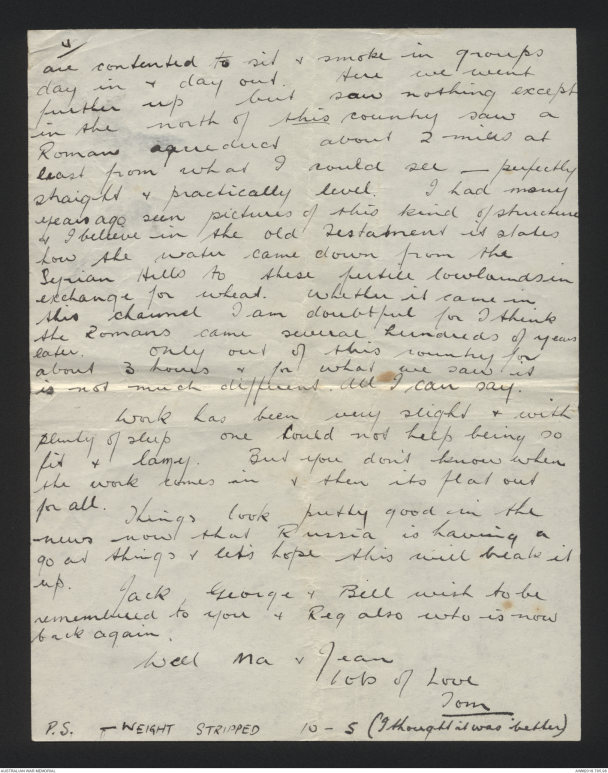 4
are contented to sit & smoke in groups
day in & day out. Here we went
further up but saw nothing except
in the north of this country saw a
Roman aqueduct about 2 miles at
least from what I could see — perfectly
straight & practically level. I had many
years ago seen pictures of this kind of structure
& I believe in the old Testament it states
how the water came down from the
Syrian Hills to these fertile lowlands in
exchange for wheat. Whether it came in
this channel I am doubtful for I think
the Romans came several hundreds of years
later. Only out of this country for
about 3 hours & for what we saw it
is not much different. All I can say.
Work has been very slight & with
plenty of sleep one could not help being so
fit & lazy. But you don't know when
the work comes in & then its flat out
for all.
Things look pretty good in the
news now that Russia is having a
go at things & let's hope this will break it
up.
Jack, George & Bill wish to be
remembered to you & Reg also who is now
back again.
Well Ma & Jean
lots of Love
Tom
P.S. — WEIGHT STRIPPED 10 - 5 (I thought it was better)
AUSTRALIAN WAR MEMORIAL